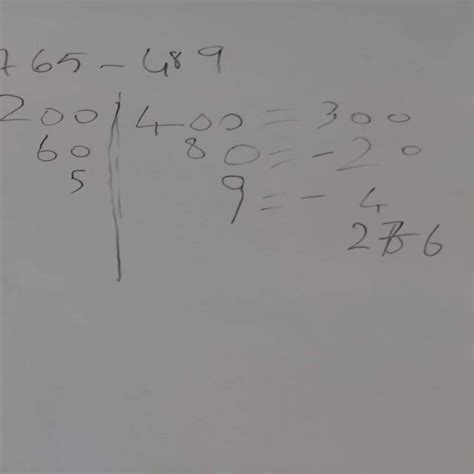 765 - 489
700 | 400 = 300
60 | 80 = -20
5 | 9 = - 4
276